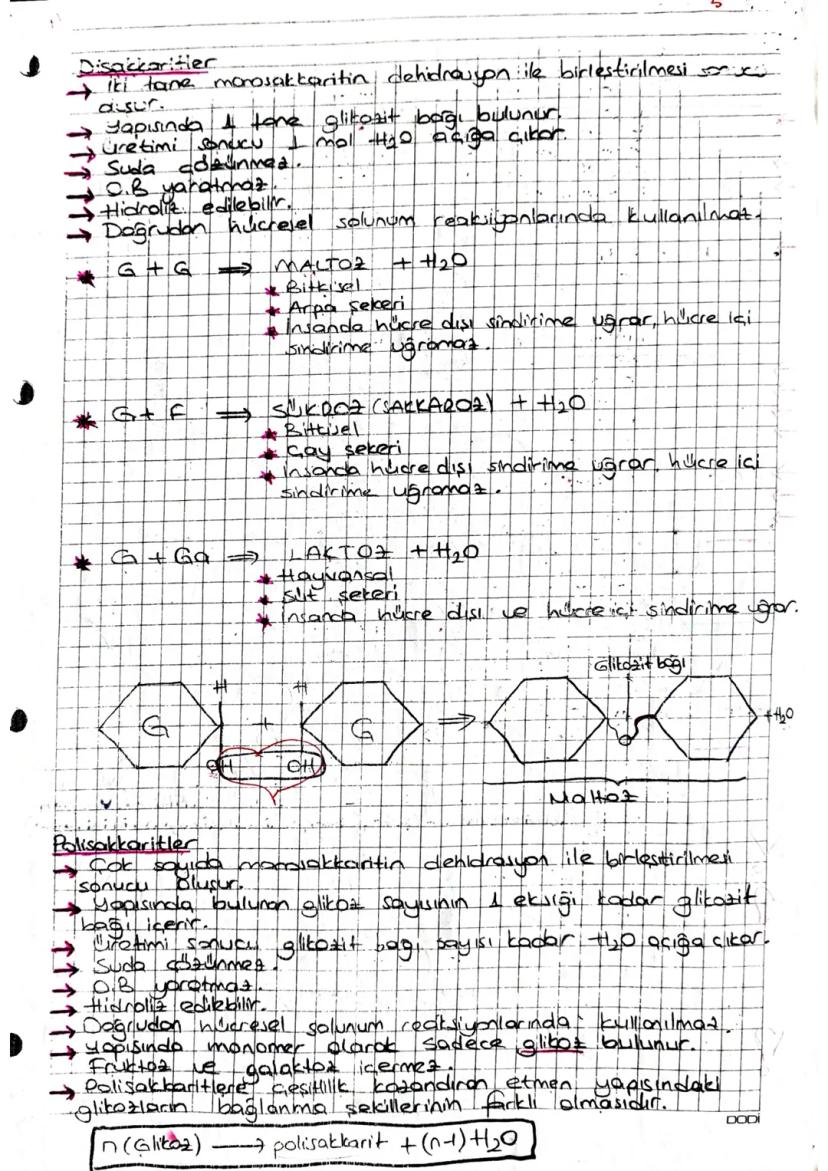 Disakkaritler
→ İki tane monosakkaritin dehidrasyon ile birleştirilmesi sonucu
oluşur.
→ Yapısında 1 tane glikozit bağı bulunur.
→ Üretimi sonucu 1 mol H2O açığa çıkar.
→ Suda çözünmez.
→ O.B yaratmaz.
→ Hidroliz edilebilir.
→ Doğrudan hücresel solunum reaksiyonlarında kullanılmaz.
* G + G ⇒ MALTOZ + H2O
* Bitkisel
* Arpa şekeri
* İnsanda hücre dışı sindirime uğrar, hücre içi
sindirime uğramaz.
* G + F ⇒ SÜKROZ (SAKKAROZ) + H2O
* Bitkisel
* Çay şekeri
* İnsanda hücre dışı sindirime uğrar, hücre içi
sindirime uğramaz.
* G + Ga ⇒ LAKTOZ + H2O
* Hayvansal
* Süt şekeri
* İnsanda hücre dışı ve hücre içi sindirime uğrar.
Glikozit bağı
H H
G + G ⇒ + H2O
OH OH
Maltoz
Polisakkaritler
→ Çok sayıda monosakkaritin dehidrasyon ile birleştirilmesi
sonucu oluşur.
→ Yapısında bulunan glikoz sayısının 1 eksiği kadar glikozit
bağı içerir.
→ Üretimi sonucu glikozit bağı sayısı kadar H2O açığa çıkar.
→ Suda çözünmez.
→ O.B yaratmaz.
→ Hidroliz edilebilir.
→ Doğrudan hücresel solunum reaksiyonlarında kullanılmaz.
→ Yapısında monomer olarak sadece glikoz bulunur.
Fruktoz ve galaktoz içermez.
→ Polisakkaritlere çeşitlilik kazandıran etmen yapısındaki
glikozların bağlanma şekillerinin farklı olmasıdır.
n(Glikoz) → polisakkarit + (n-1) H2O